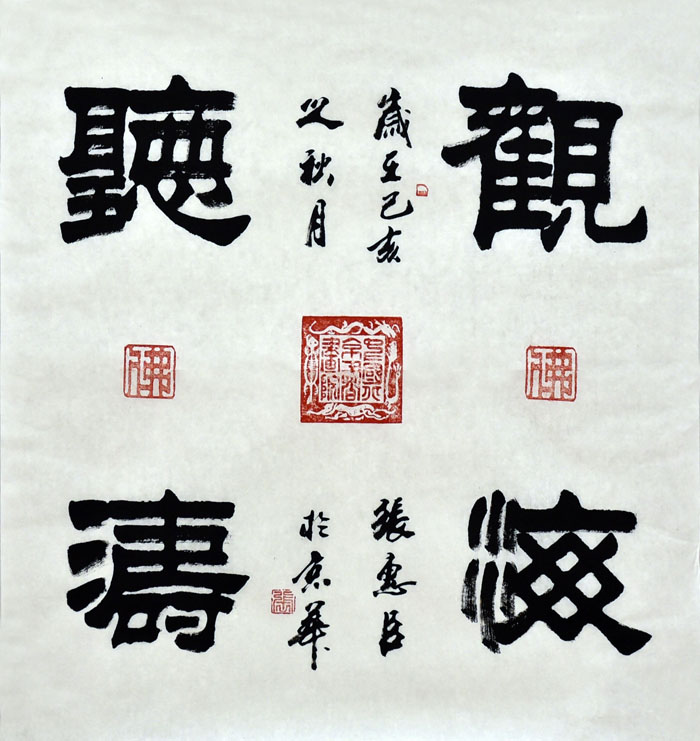 觀海
聽濤
歲在己亥
之秋月
張惠臣
於京華
佛
佛